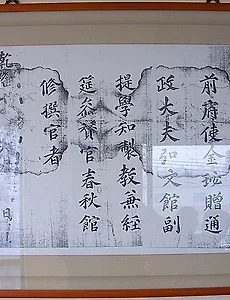 前府使金䃤贈通
政大夫弘文館副
提學知製敎兼經
筵叅贊官春秋館
修撰官者
乾隆